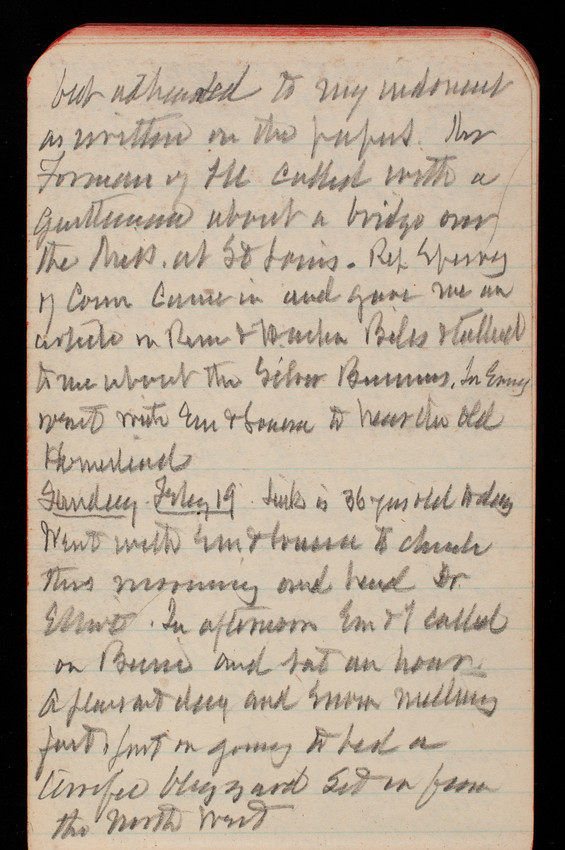 but adhered to my indorsment
as written on the papers. Mr
Forman of Ill called with a
gentleman about a bridge over
the Miss. at St Louis. Rep Sperry
of Conn came in and gave me an
article on River & Harbor Bills & talked
to me about the Silver Business. In Eveng
went with Em & Louisa to hear the Old
Homestead
Sunday Feby 19. is 36 years old today
Went with Em & Louisa to church
this morning and heard Dr.
Elliott. In afternoon Em & I called
on and sat an hour.
A pleasant day and Snow melting
fast, Just on going to bed a
terrific blizzard Set in from
the North West